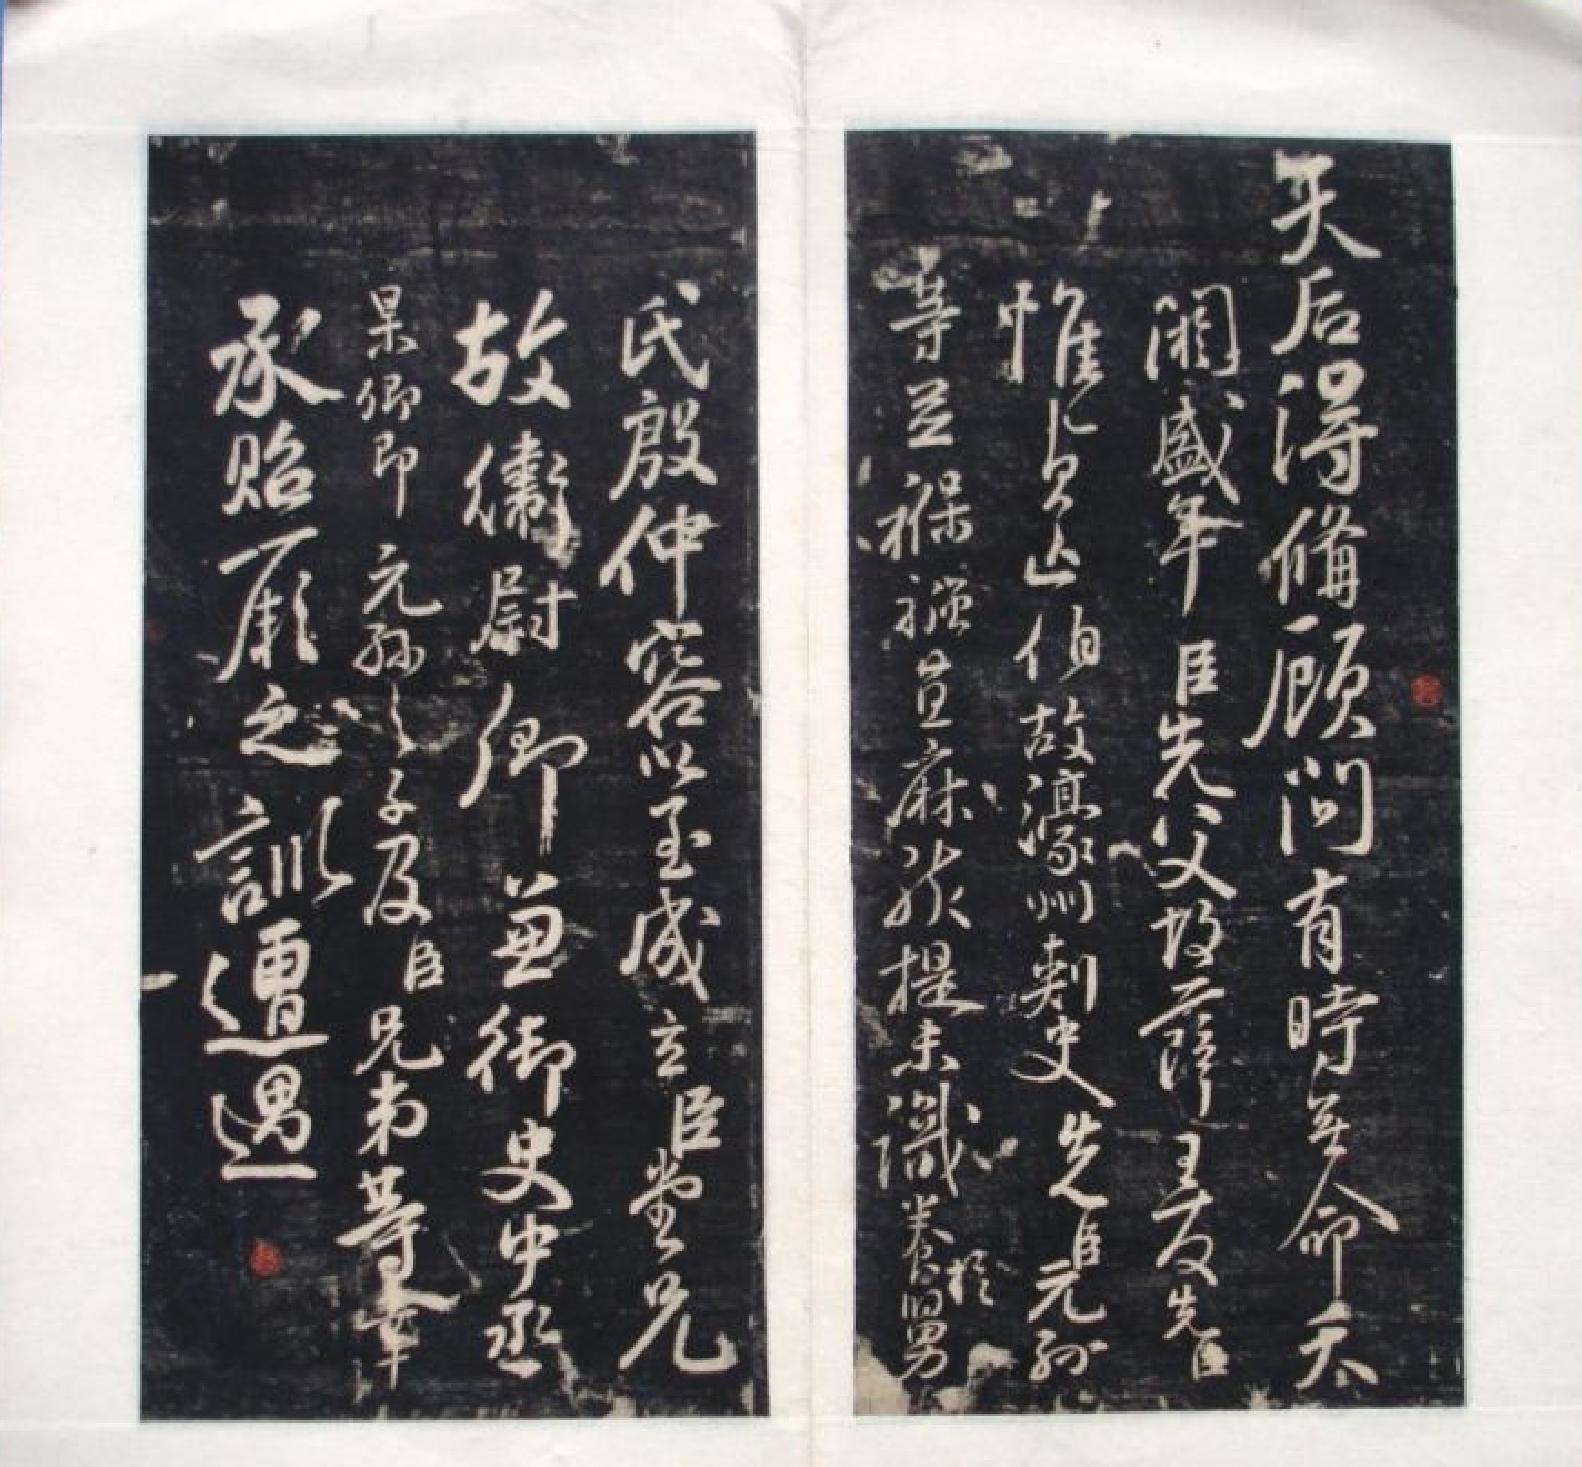 天后得備顧問有時無命天
閼盛年臣先父故薛王友先臣
惟貞亡伯故濠州刺史先臣元孫
等並褓襁苴麻孩提未識養於舅
氏殷仲容以至成立臣堂兄
故衛尉卿兼御史中丞
杲卿即元孫之子及臣兄弟等幸
承貽厥之訓遭遇